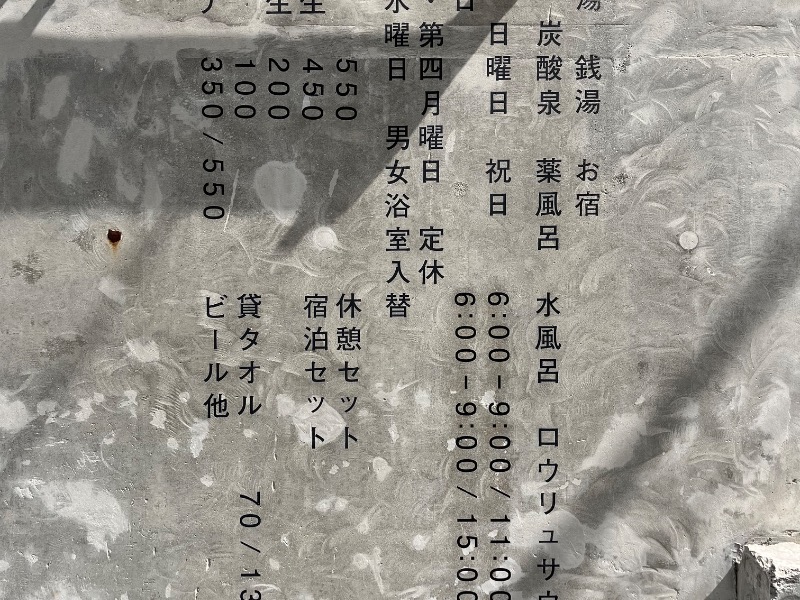 銭湯 お宿
炭酸泉 薬風呂 水風呂 ロウリュサウ
日曜日 祝日 6:00-9:00/11:00
6:00-9:00/15:00
第四月曜日 定休
水曜日 男女浴室入替
550 休憩セット
生 450 宿泊セット
生 200
100 貸タオル 70/13
350/550 ビール他